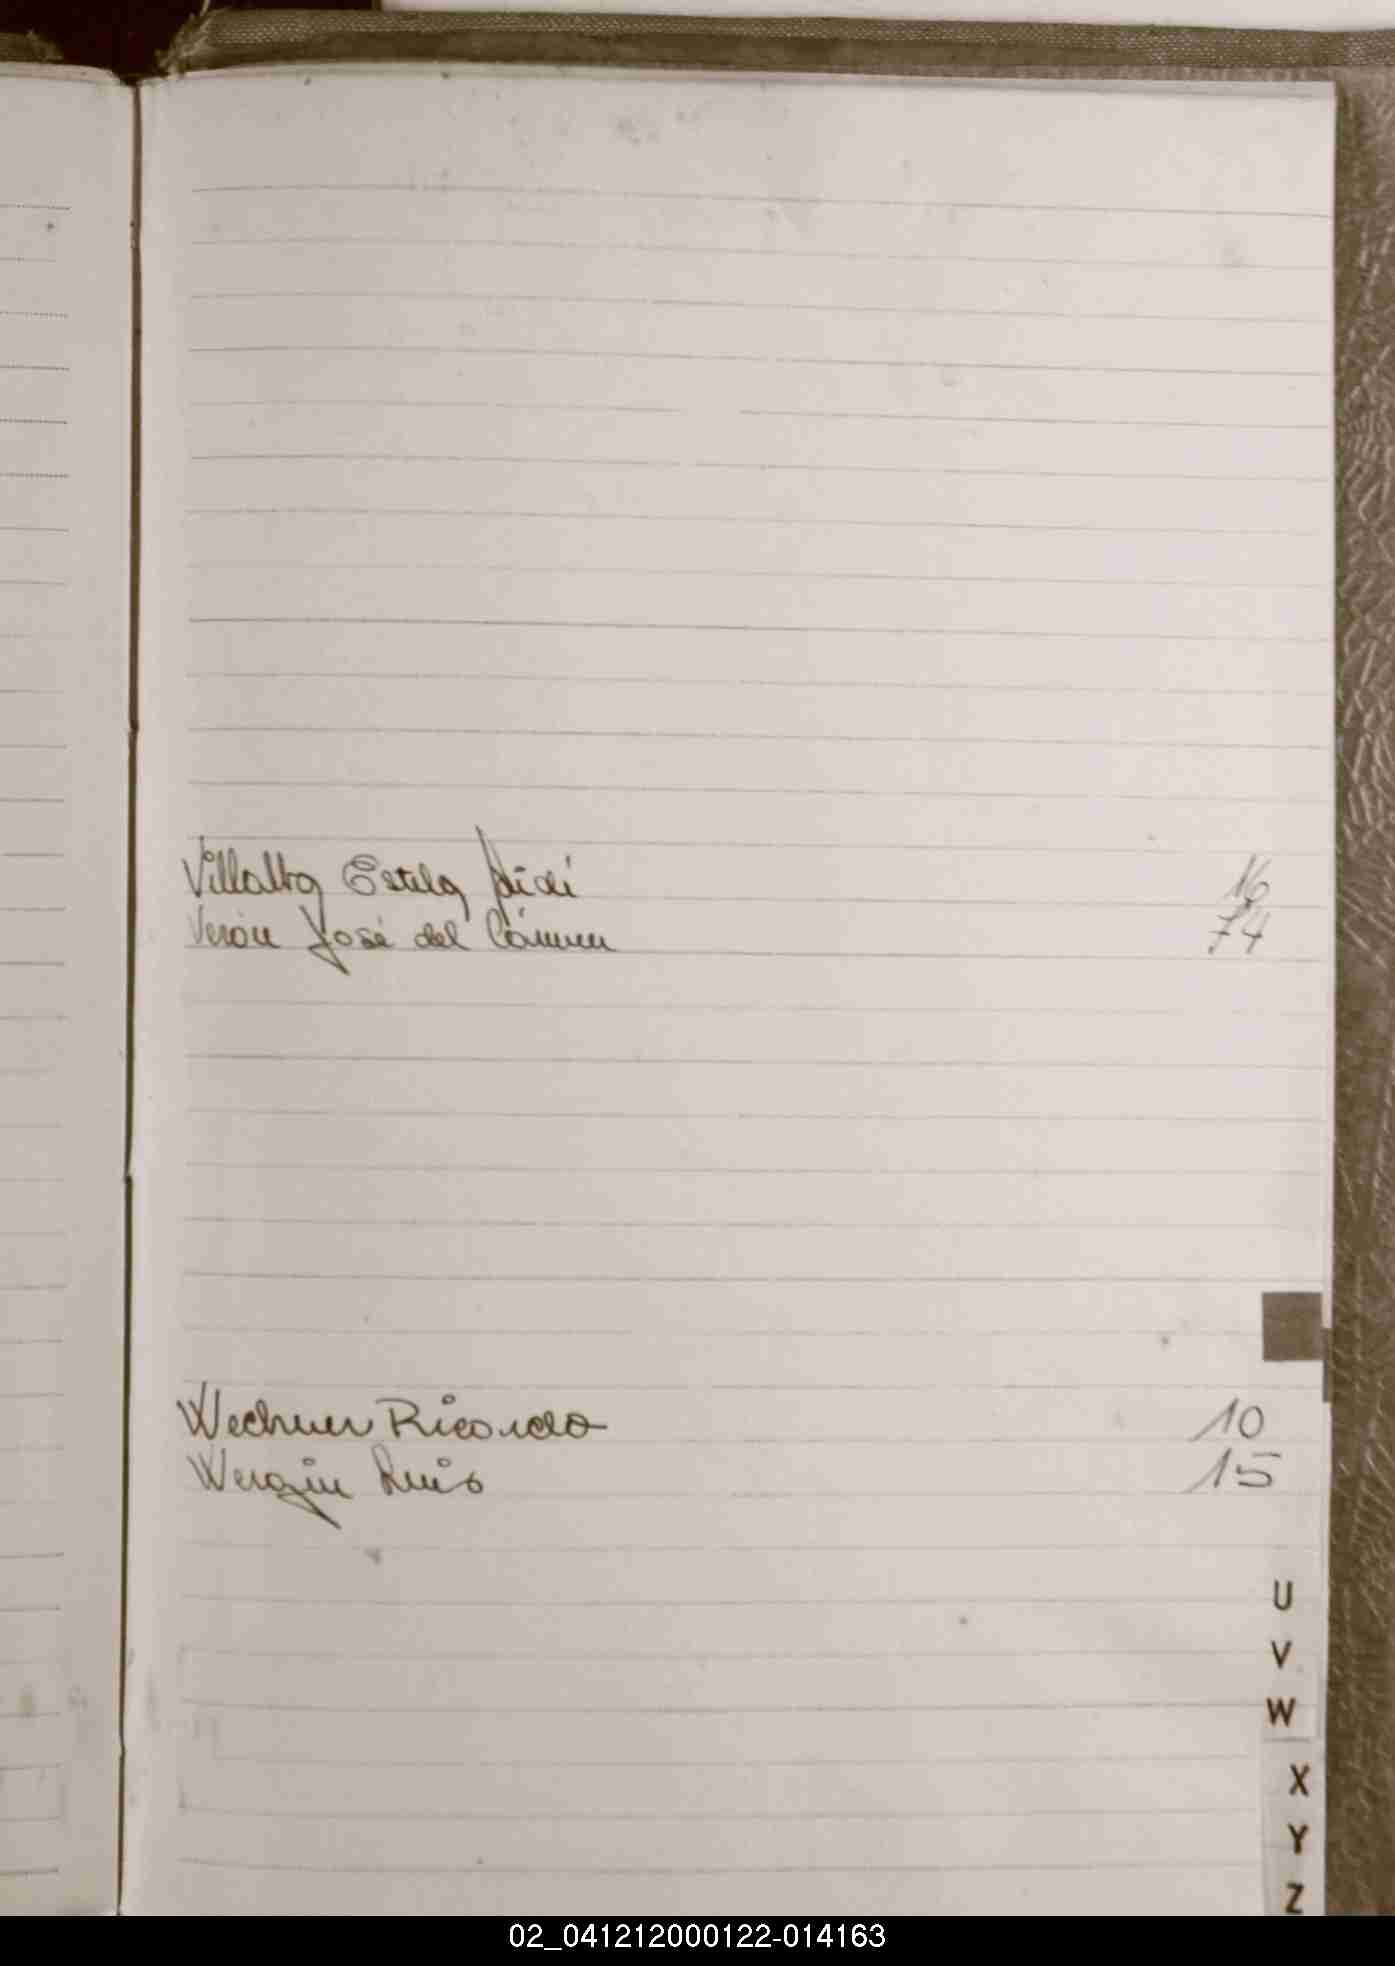 Villalba Estela Didí 16
Verón José del Cármen 74
Wechner Ricardo 10
Wergin Luis 15
U
V
W
X
Y
Z
02_041212000122-014163